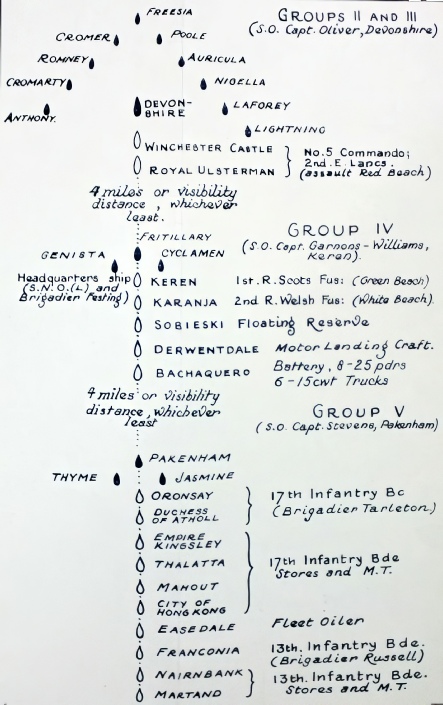 FREESIA
GROUPS II AND III
(S.O. Capt. Oliver, Devonshire)
CROMER
POOLE
ROMNEY
AURICULA
CROMARTY
NIGELLA
ANTHONY.
DEVON-
SHIRE
LAFOREY
LIGHTNING
WINCHESTER CASTLE
ROYAL ULSTERMAN
No.5 Commando;
2nd. E. Lancs.
(assault Red Beach)
4 miles or visibility
distance, whichever
least.
GROUP IV
(S.O. Capt. Garnons-Williams,
Keren).
FRITILLARY
GENISTA
CYCLAMEN
Headquarters ship
(S.N.O.(L) and
Brigadier Festing)
KEREN 1st. R. Scots Fus: (Green Beach)
KARANJA 2nd. R. Welsh Fus: (White Beach).
SOBIESKI Floating Reserve
DERWENTDALE Motor Landing Craft.
BACHAQUERO Battery, 8-25 pdrs
6-15cwt Trucks
4 miles or visibility
distance, whichever
least
GROUP V
(S.O. Capt. Stevens, Pakenham)
PAKENHAM
THYME
JASMINE
ORONSAY
DUCHESS
OF ATHOLL
17th Infantry Bc
(Brigadier Tarleton.)
EMPIRE
KINGSLEY
THALATTA
MAHOUT
CITY OF
HONG KONG
17th Infantry Bde
Stores and M.T.
EASEDALE Fleet Oiler
FRANCONIA 13th. Infantry Bde.
(Brigadier Russell)
NAIRNBANK
MARTAND
13th. Infantry Bde.
Stores and M.T.